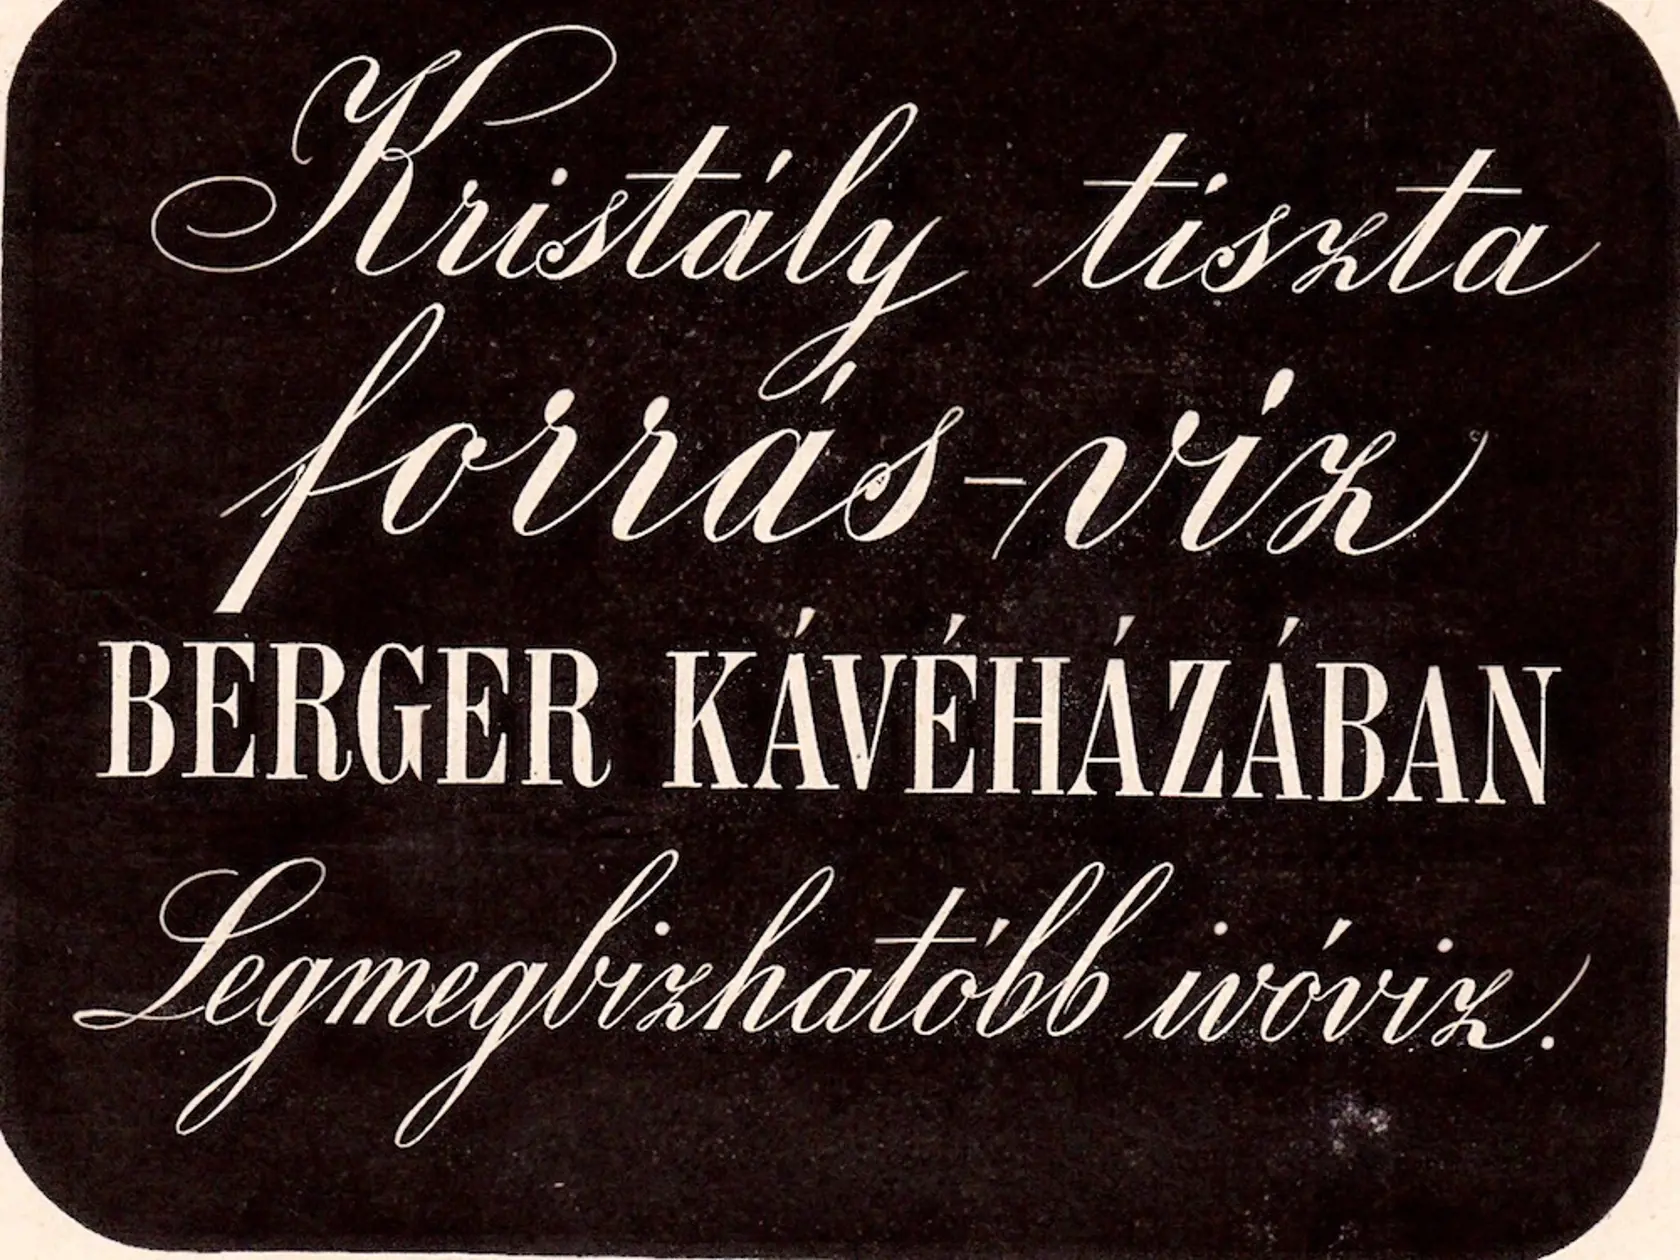 Kristály tiszta
forrás-víz
BERGER KÁVÉHÁZÁBAN
Legmegbizhatóbb ivóviz.